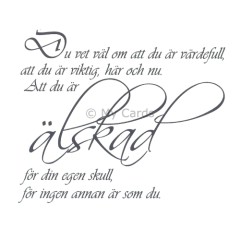 Du vet väl om att du är värdefull,
att du är viktig, här och nu.
Att du är
© My Cards
älskad
för din egen skull,
för ingen annan är som du.